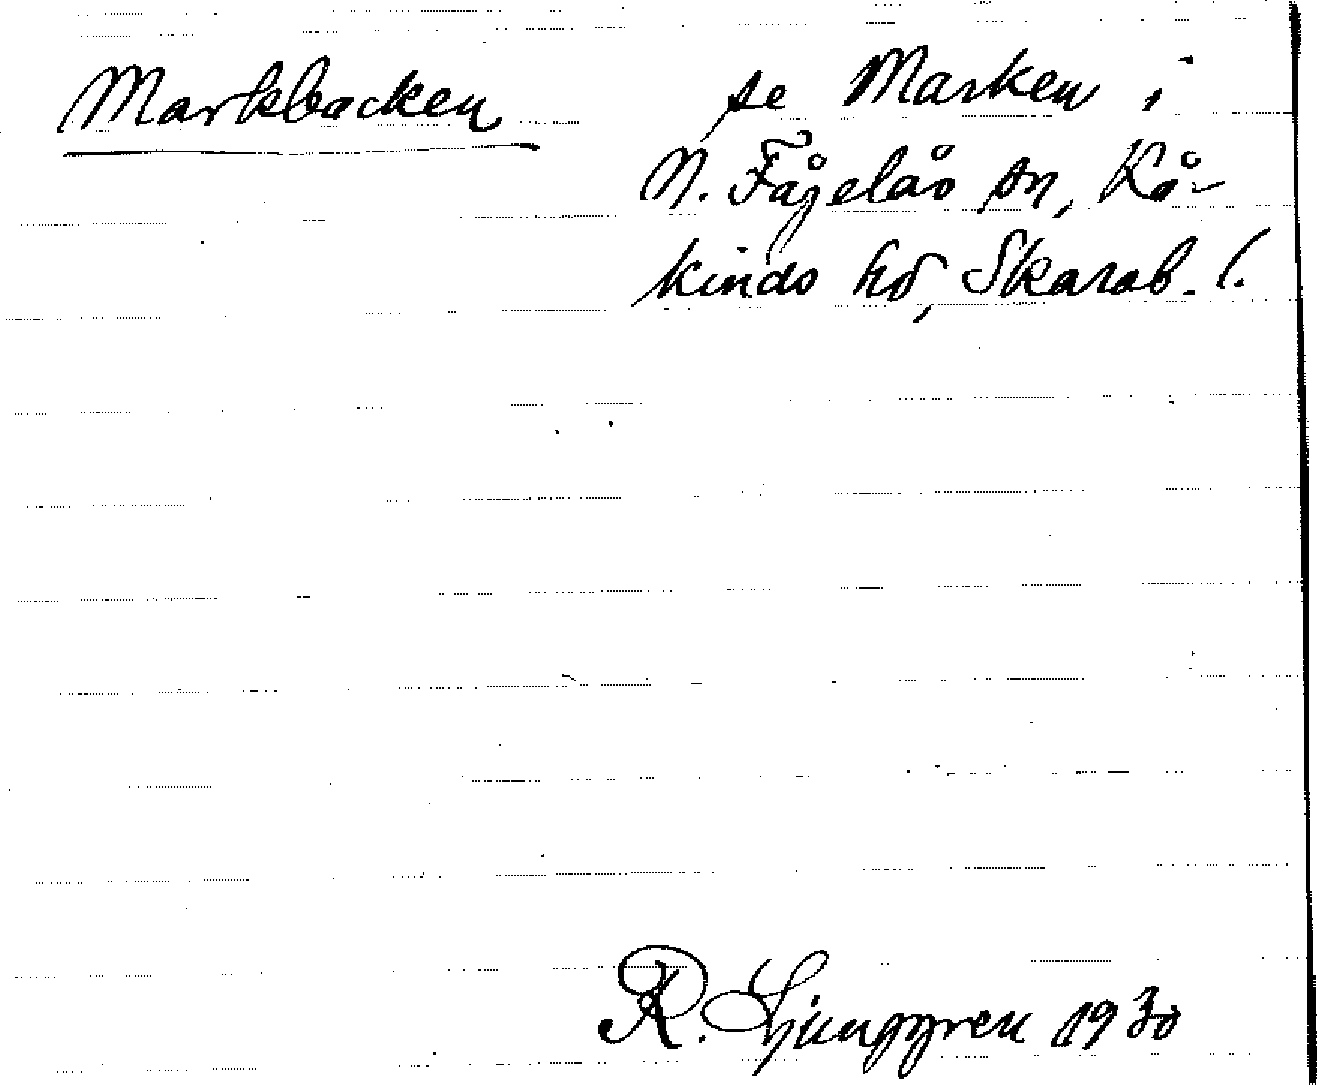 Markbacken se Marken i
N. Fågelås sn, Kå-
kinds hd, Skarab. l.
R. Ljunggren 1930